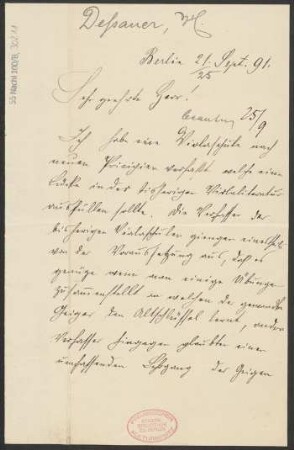 Dessauer, H
Berlin 21/25 Sept. 91.
Sehr geehrter Herr!
25/9
Ich habe eine Violaschule nach
neuen Principien verfasst welche eine
Lücke in der bisherigen Violaliteratur
ausfüllen sollte. Die Verfasser der
bisherigen Violaschulen giengen
von der Voraussetzung aus, dass es
genüge wenn man einige Übungen
zusammenstellt in welchen der
Geiger den Altschlüssel lernt, andere
Verfasser hingegen glaubten einen
umfassenden Lehrgang des Geigen